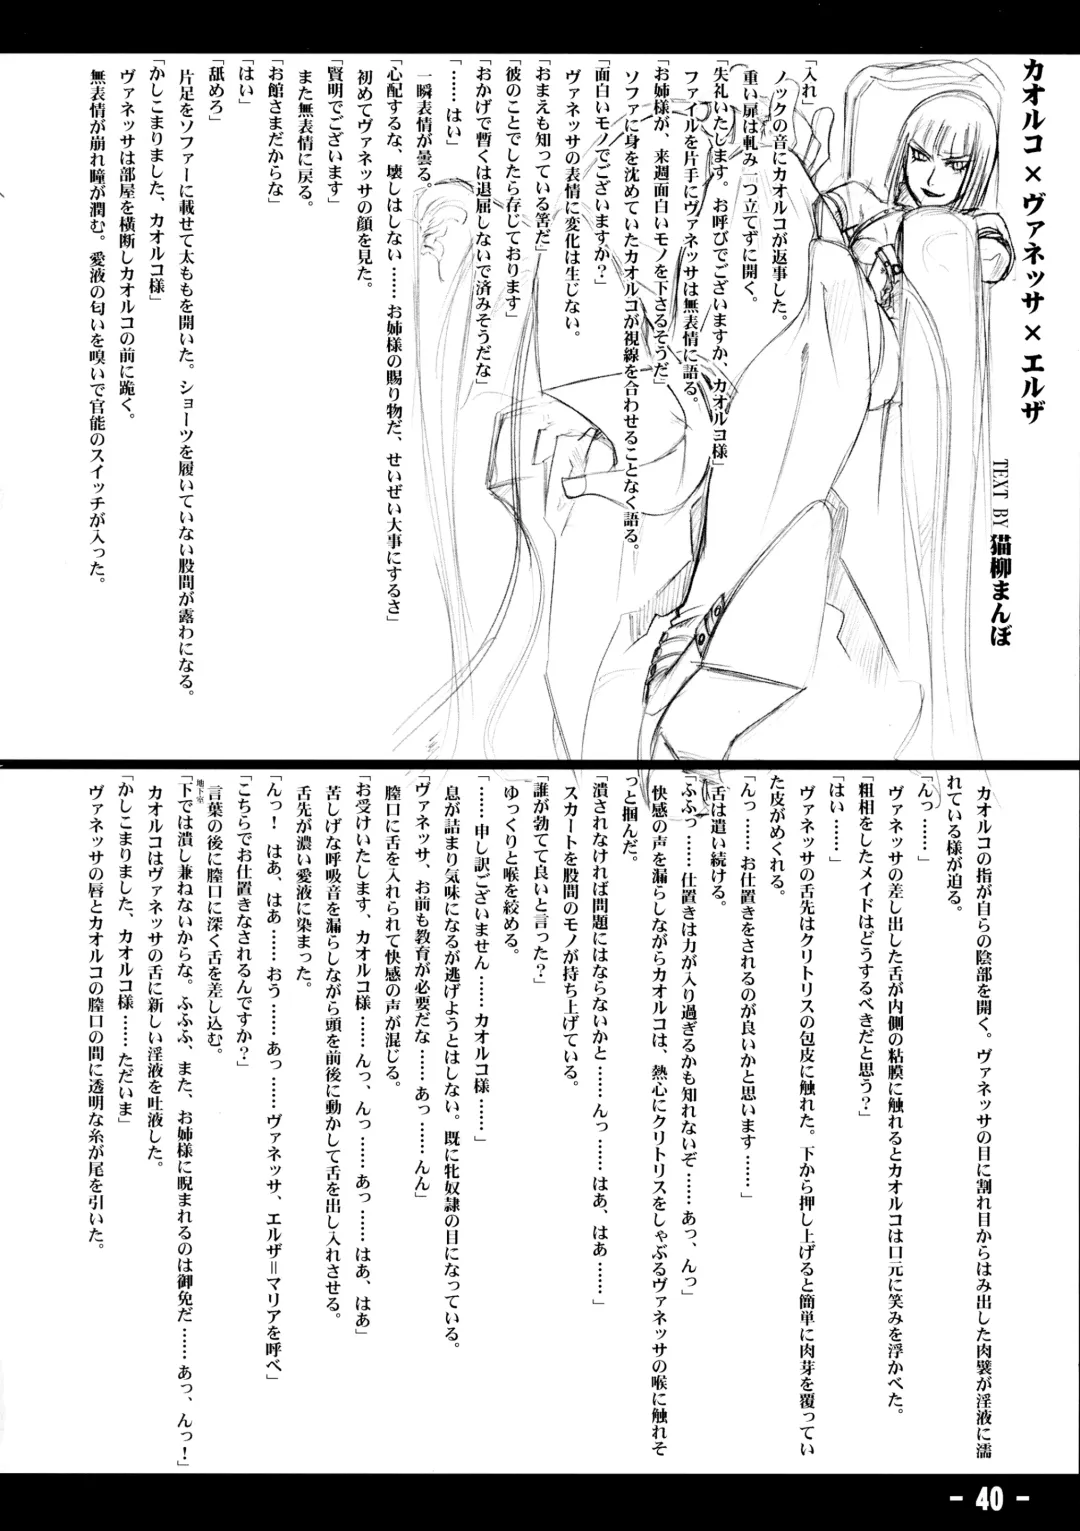 カオルコ×ヴァネッサ×エルザ
TEXT BY 猫柳まんぼ
「入れ」
ノックの音にカオルコが返事した。
重い扉は軋み一つ立てずに開く。
「失礼いたします。お呼びでございますか、カオルコ様」
ファイルを片手にヴァネッサは無表情に語る。
「お姉様が、来週面白いモノを下さるそうだ」
ソファに身を沈めていたカオルコが視線を合わせることなく語る。
「面白いモノでございますか?」
ヴァネッサの表情に変化は生じない。
「おまえも知っている筈だ」
「彼のことでしたら存じております」
「おかげで暫くは退屈しないで済みそうだな」
「……はい」
一瞬表情が曇る。
「心配するな、壊しはしない……お姉様の賜り物だ、せいぜい大事にするさ」
初めてヴァネッサの顔を見た。
「賢明でございます」
また無表情に戻る。
「お館さまだからな」
「はい」
「舐めろ」
片足をソファーに載せて太ももを開いた。ショーツを履いていない股間が露わになる。
「かしこまりました、カオルコ様」
ヴァネッサは部屋を横断しカオルコの前に跪く。
無表情が崩れ瞳が潤む。愛液の匂いを嗅いで官能のスイッチが入った。
カオルコの指が自らの陰部を開く。ヴァネッサの目に割れ目からはみ出した肉襞が淫液に濡
れている様が迫る。
「んっ……」
ヴァネッサの差し出した舌が内側の粘膜に触れるとカオルコは口元に笑みを浮かべた。
「粗相をしたメイドはどうするべきだと思う?」
「はい……」
ヴァネッサの舌先はクリトリスの包皮に触れた。下から押し上げると簡単に肉芽を覆ってい
た皮がめくれる。
「んっ……お仕置きをされるのが良いかと思います……」
舌は遣い続ける。
「ふふっ……仕置きは力が入り過ぎるかも知れないぞ……あっ、んっ」
快感の声を漏らしながらカオルコは、熱心にクリトリスをしゃぶるヴァネッサの喉に触れそ
っと掴んだ。
「潰されなければ問題にはならないかと……んっ……はあ、はあ……」
スカートを股間のモノが持ち上げている。
「誰が勃てて良いと言った?」
ゆっくりと喉を絞める。
「……申し訳ございません……カオルコ様……」
息が詰まり気味になるが逃げようとはしない。既に牝奴隷の目になっている。
「ヴァネッサ、お前も教育が必要だな……あっ……んん」
膣口に舌を入れられて快感の声が混じる。
「お受けいたします、カオルコ様……んっ、んっ……あっ……はあ、はあ」
苦しげな呼吸音を漏らしながら頭を前後に動かして舌を出し入れさせる。
舌先が濃い愛液に染まった。
「んっ! はあ、はあ……おう……あっ……ヴァネッサ、エルザ=マリアを呼べ」
「こちらでお仕置きなされるんですか?」
言葉の後に膣口に深く舌を差し込む。
「下では潰し兼ねないからな。ふふふ、また、お姉様に睨まれるのは御免だ……あっ、んっ!」
地下室
カオルコはヴァネッサの舌に新しい淫液を吐液した。
「かしこまりました、カオルコ様……ただいま」
ヴァネッサの唇とカオルコの膣口の間に透明な糸が尾を引いた。
- 40 -